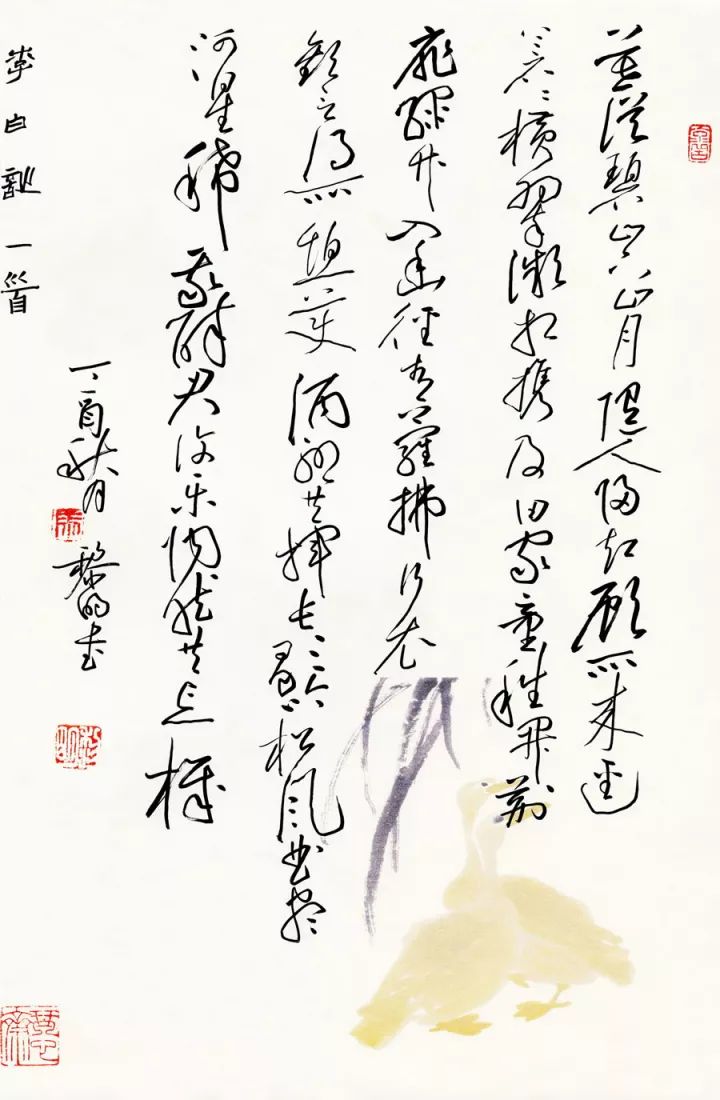 暮從碧山下山月随人歸却顾所来徑
蒼蒼橫翠微相携及田家童稚開荊
扉綠竹入幽徑青蘿拂行衣
歡言得所憩美酒聊共揮長歌吟松風曲盡
河星稀我醉君復樂陶然共忘機
丁酉秋月 黎明書
李白詩一首